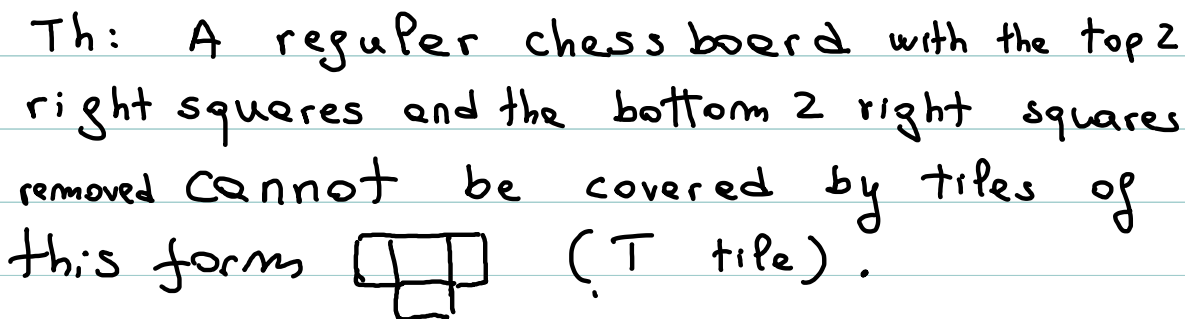 Th: A reguler chess board with the top 2
right squares and the bottom 2 right squares
removed cannot be covered by tiles of
this form (T tile).